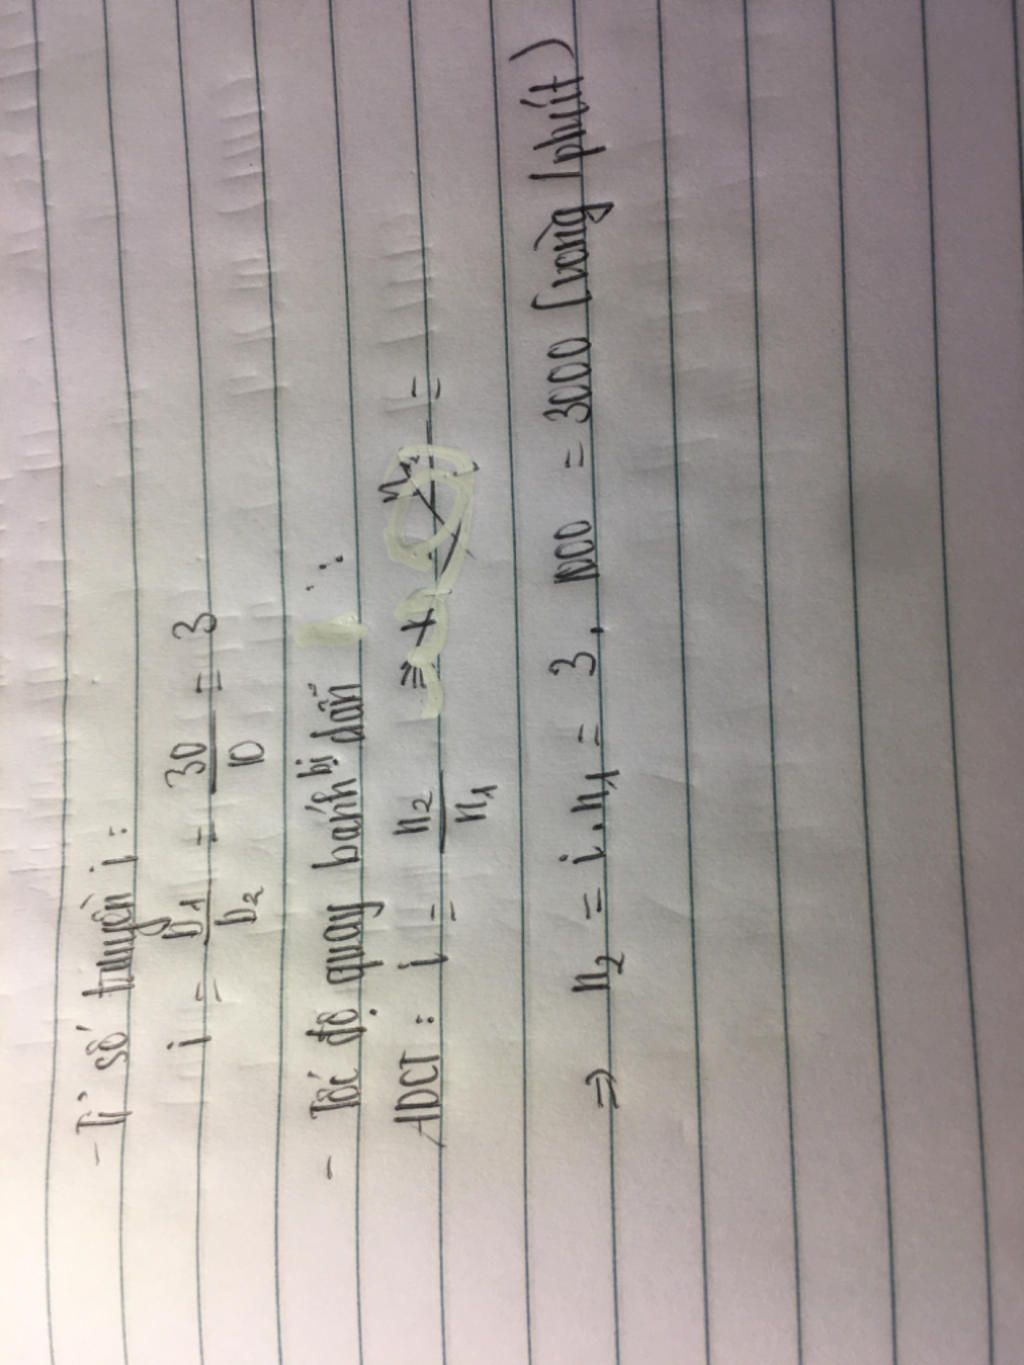 - Tỉ số truyền i:
i = D1/D2 = 30/10 = 3
- Tốc độ quay bánh bị dẫn :
ADCT : i = n2/n1 =
⇒ n2 = i . n1 = 3 . 1000 = 3000 (vòng/phút)